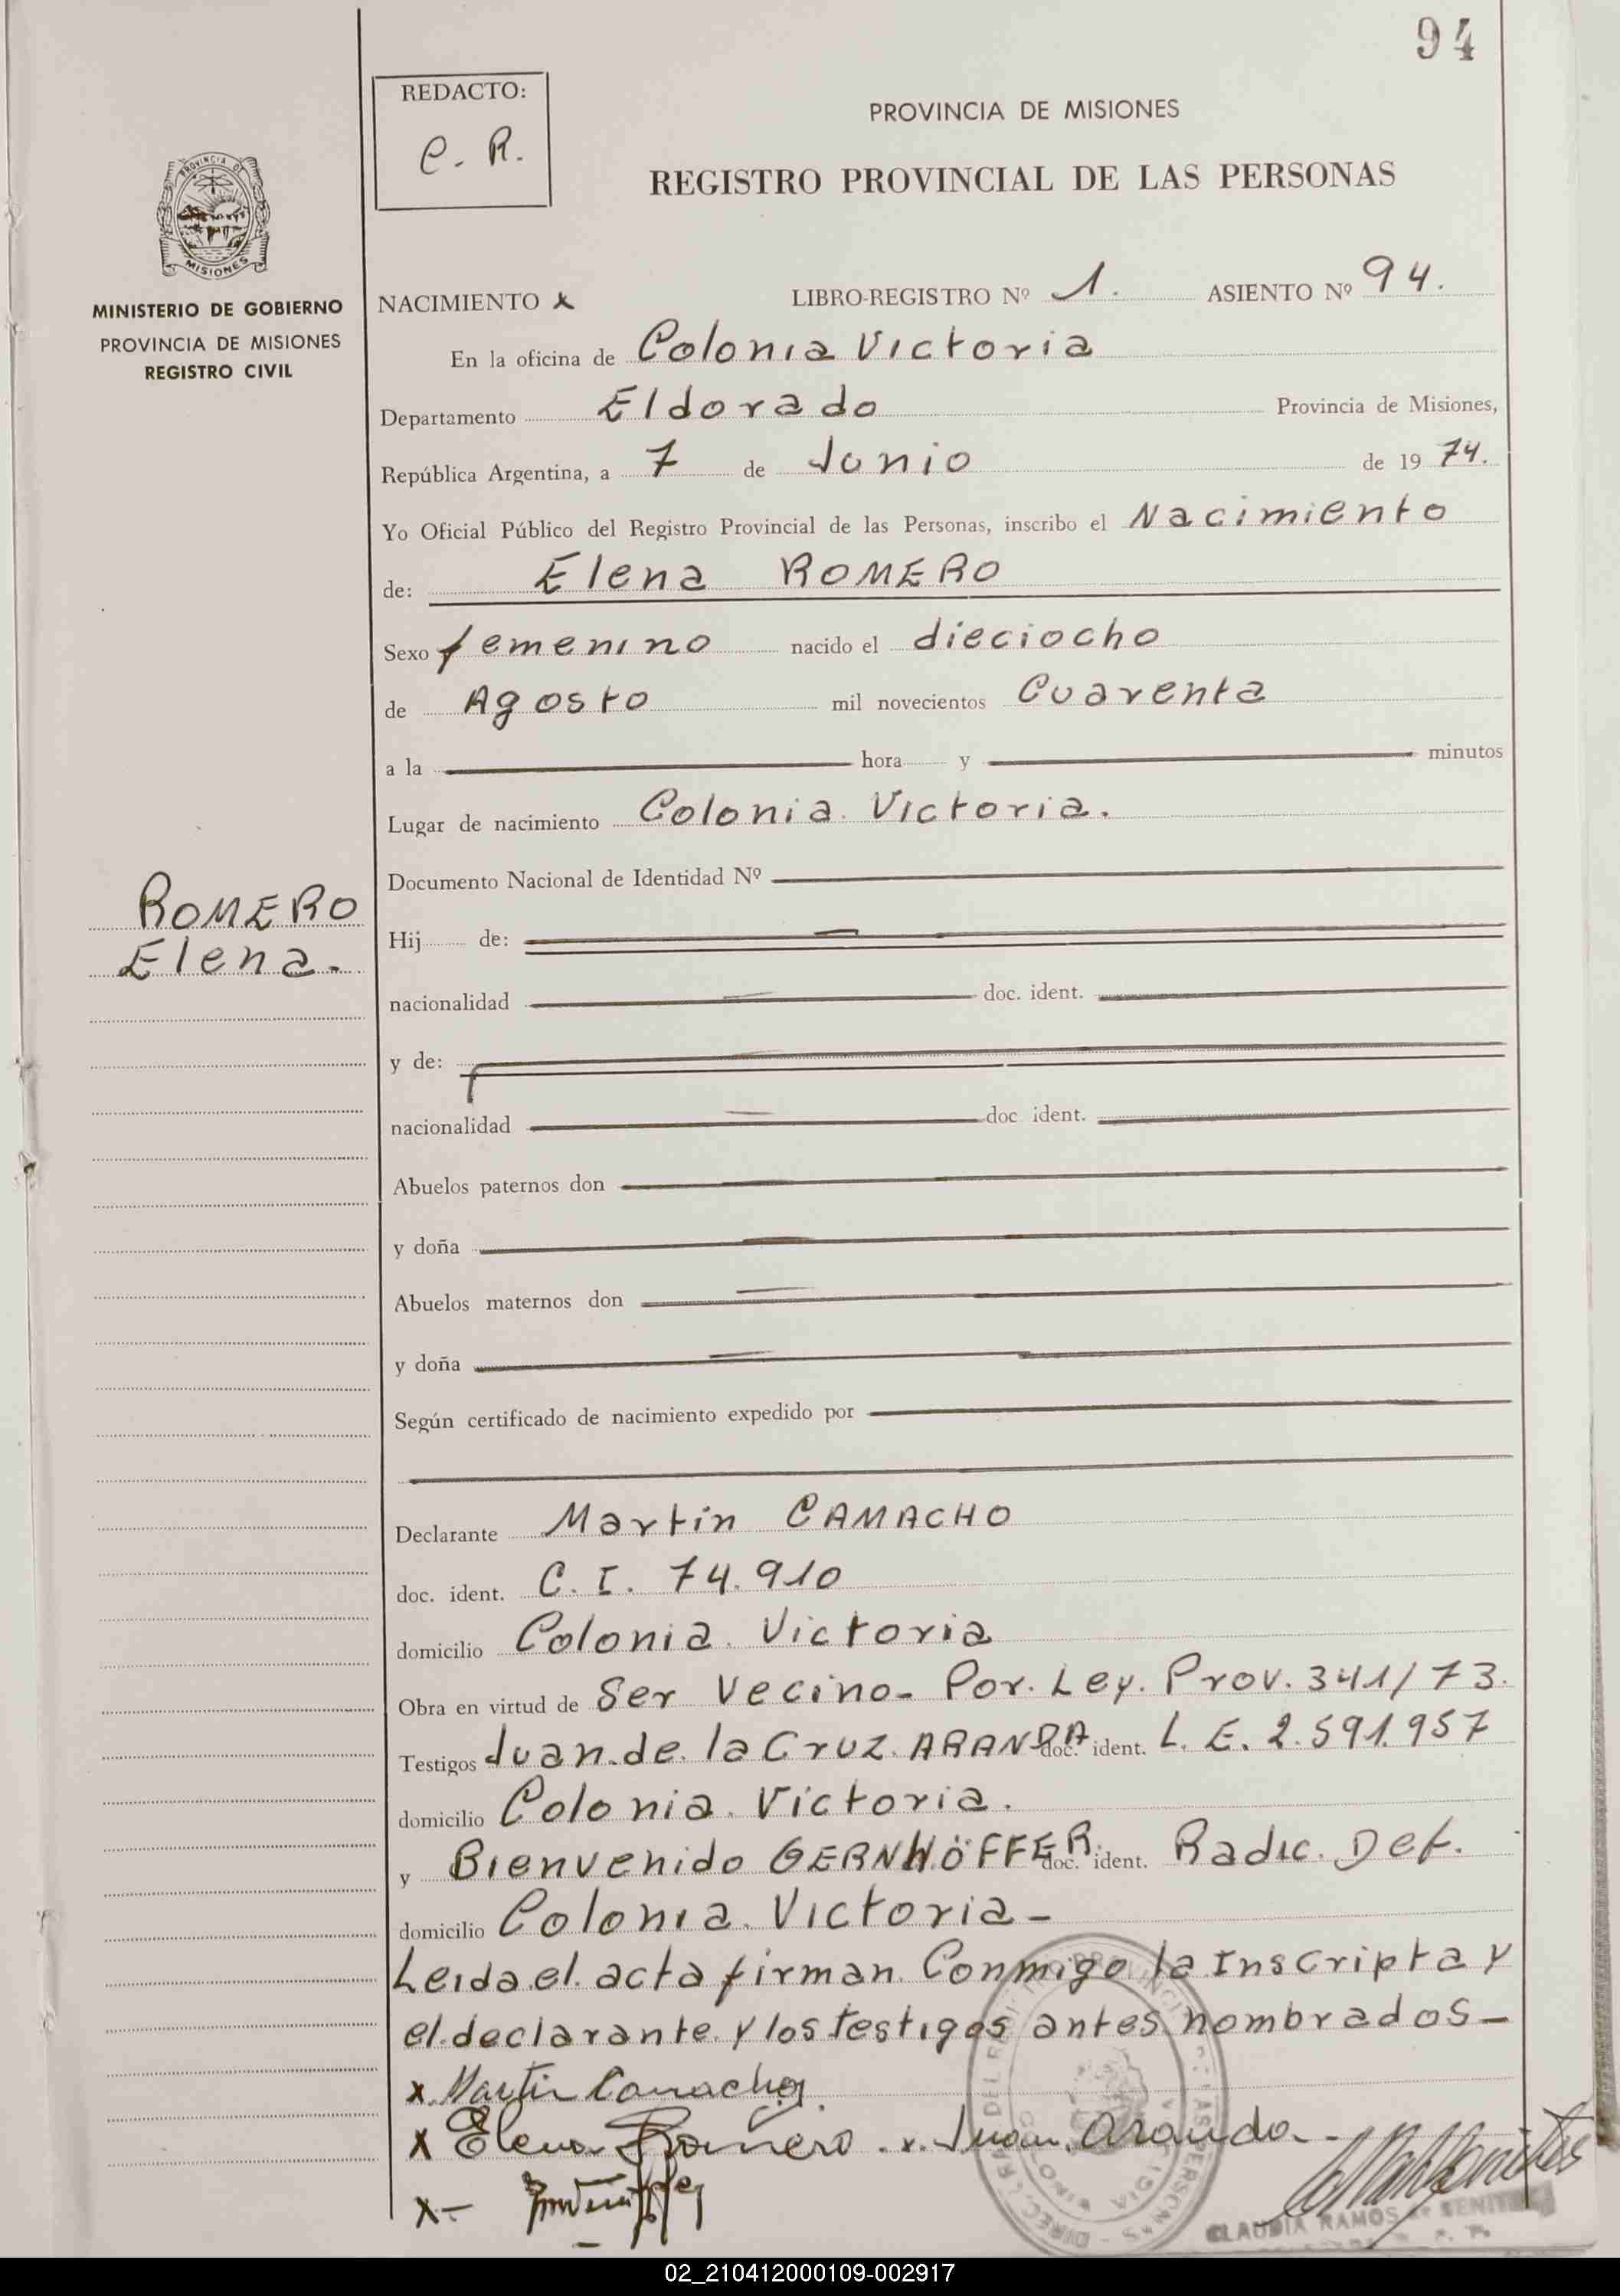 94
REDACTO:
C. R.
PROVINCIA DE MISIONES
REGISTRO PROVINCIAL DE LAS PERSONAS
PROVINCIA DE
MISIONES
MINISTERIO DE GOBIERNO
PROVINCIA DE MISIONES
REGISTRO CIVIL
NACIMIENTO x LIBRO-REGISTRO Nº 1. ASIENTO Nº 94.
En la oficina de Colonia Victoria
Departamento Eldorado Provincia de Misiones,
República Argentina, a 7 de Junio de 19 74.
Yo Oficial Público del Registro Provincial de las Personas, inscribo el Nacimiento
de: Elena ROMERO
Sexo femenino nacido el dieciocho
de Agosto mil novecientos Cuarenta
a la hora y minutos
Lugar de nacimiento Colonia Victoria.
Documento Nacional de Identidad Nº
ROMERO
Elena.
Hij de:
nacionalidad doc. ident.
y de:
nacionalidad doc ident.
Abuelos paternos don
y doña
Abuelos maternos don
y doña
Según certificado de nacimiento expedido por
Declarante Martin CAMACHO
doc. ident. C. I. 74.910
domicilio Colonia Victoria
Obra en virtud de Ser Vecino- Por. Ley. Prov. 341/73.
Testigos Juan de la Cruz ARANDA doc. ident. L. E. 2.591.957
domicilio Colonia Victoria.
y Bienvenido GERNHÖFFER. doc. ident. Radic. Def.
domicilio Colonia Victoria-
Leida el acta firman Conmigo la Inscripta y
el declarante y los testigos antes nombrados-
x Martin Camacho
x Elena Romero x Juan Aranda
x-
CLAUDIA RAMOS DE BENITEZ
02_210412000109-002917